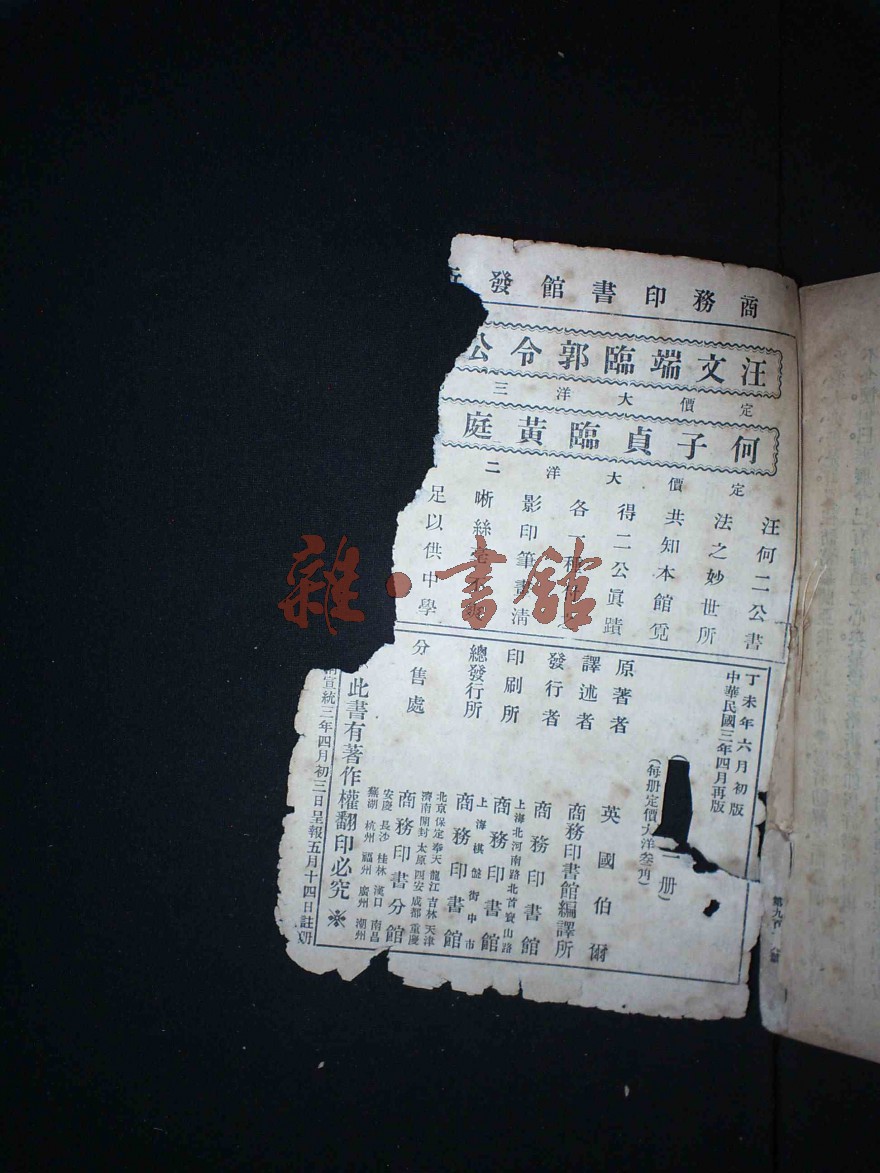 商務印書館發
汪文端臨郭令公
定價大洋三
何子貞臨黃庭
定價大洋二
汪何二公書
法之妙世所
共知本館覓
得二公眞蹟
各一種
影印筆畫清
晰絲毫
足以供中學
丁未年六月初版
中華民國三年四月再版
一册
(每册定價大洋叁角)
原著者 英國伯爾
譯述者 商務印書館編譯所
發行者 商務印書館
上海北河南路北首寶山路
印刷所 商務印書館
上海棋盤街中市
總發行所 商務印書館
北京保定奉天龍江吉林天津
濟南開封太原西安成都重慶
分售處 商務印書分館
安慶長沙桂林漢口南昌
蕪湖杭州福州廣州潮州
此書有著作權翻印必究※
宣統三年四月初三日呈報五月十四日註册
第九
雜·書館